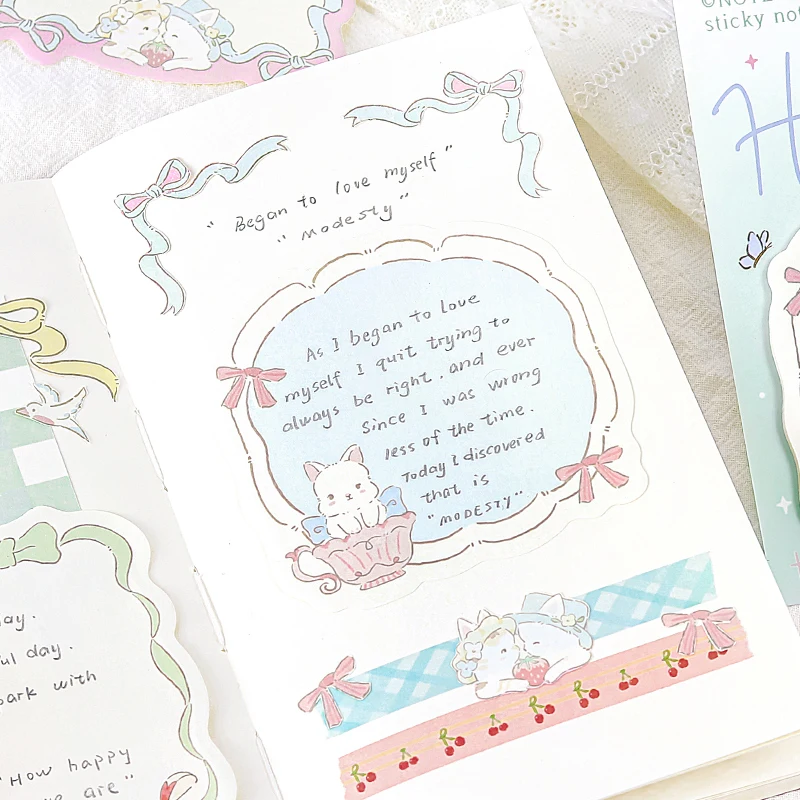 ©NOTE
sticky not
H
" Began to love myself "
" Modesty "
As I began to love
myself I quit trying to
always be right. and ever
since I was wrong
less of the time.
Today I discovered
that is
"MODESTY"
ay.
ul day.
park with
"How happy
we are"